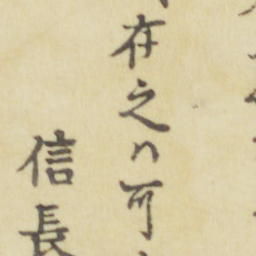 在之ハ可
信長